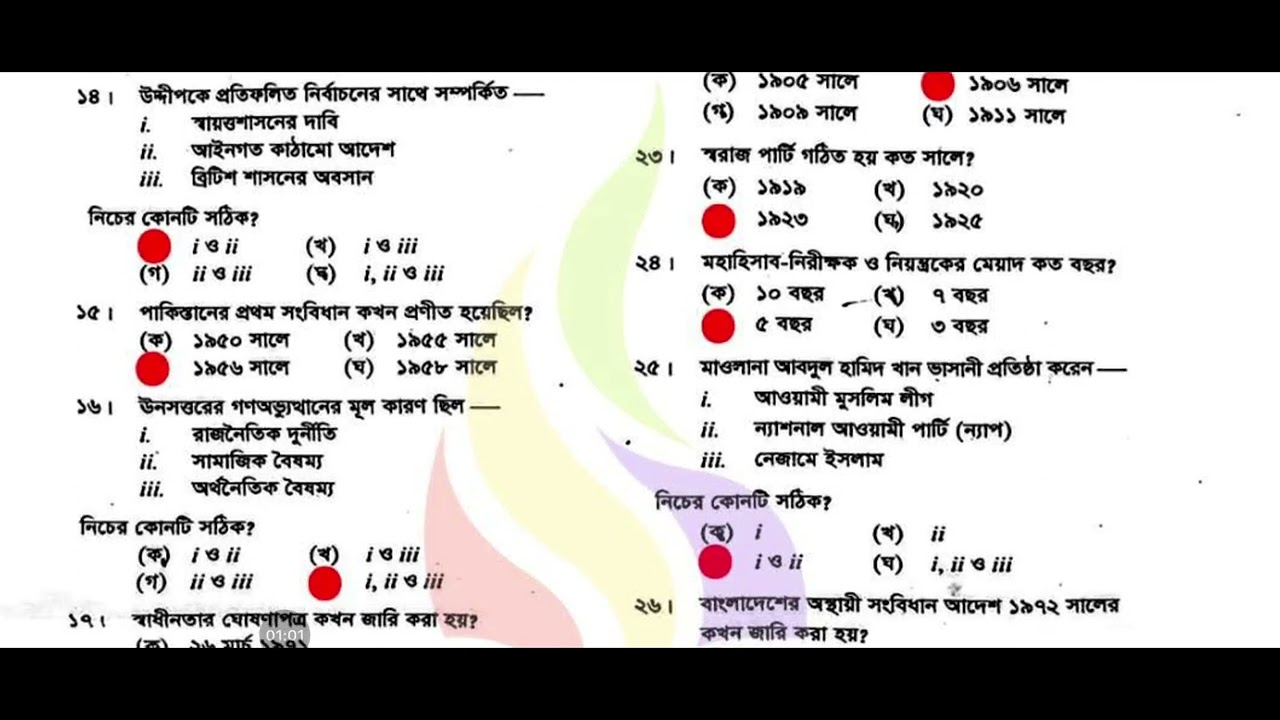 ১৪। উদ্দীপকে প্রতিফলিত নির্বাচনের সাথে সম্পর্কিত —
i. স্বায়ত্তশাসনের দাবি
ii. আইনগত কাঠামো আদেশ
iii. ব্রিটিশ শাসনের অবসান
নিচের কোনটি সঠিক?
i ও ii (খ) i ও iii
(গ) ii ও iii (ঘ) i, ii ও iii
১৫। পাকিস্তানের প্রথম সংবিধান কখন প্রণীত হয়েছিল?
(ক) ১৯৫০ সালে (খ) ১৯৫৫ সালে
১৯৫৬ সালে (ঘ) ১৯৫৮ সালে
১৬। ঊনসত্তরের গণঅভ্যুত্থানের মূল কারণ ছিল —
i. রাজনৈতিক দুর্নীতি
ii. সামাজিক বৈষম্য
iii. অর্থনৈতিক বৈষম্য
নিচের কোনটি সঠিক?
(ক) i ও ii (খ) i ও iii
(গ) ii ও iii i, ii ও iii
১৭। স্বাধীনতার ঘোষণাপত্র কখন জারি করা হয়?
01:01
(ক) ২৬ মার্চ ১৯৭১
(ক) ১৯০৫ সালে ১৯০৬ সালে
(গ) ১৯০৯ সালে (ঘ) ১৯১১ সালে
২৩। স্বরাজ পার্টি গঠিত হয় কত সালে?
(ক) ১৯১৯ (খ) ১৯২০
১৯২৩ (ঘ) ১৯২৫
২৪। মহাহিসাব-নিরীক্ষক ও নিয়ন্ত্রকের মেয়াদ কত বছর?
(ক) ১০ বছর (খ) ৭ বছর
৫ বছর (ঘ) ৩ বছর
২৫। মাওলানা আবদুল হামিদ খান ভাসানী প্রতিষ্ঠা করেন —
i. আওয়ামী মুসলিম লীগ
ii. ন্যাশনাল আওয়ামী পার্টি (ন্যাপ)
iii. নেজামে ইসলাম
নিচের কোনটি সঠিক?
(ক) i (খ) ii
i ও ii (ঘ) i, ii ও iii
২৬। বাংলাদেশের অস্থায়ী সংবিধান আদেশ ১৯৭২ সালের
কখন জারি করা হয়?